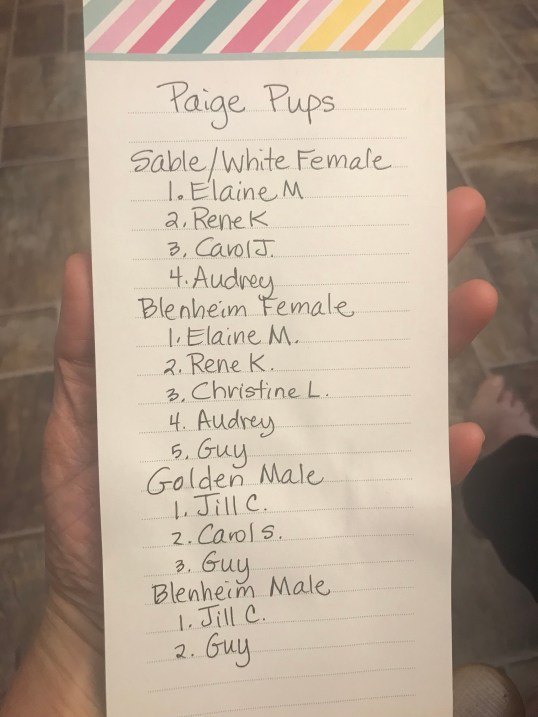 Paige Pups
Sable/White Female
1. Elaine M
2. Rene K
3. Carol J.
4. Audrey
Blenheim Female
1. Elaine M.
2. Rene K.
3. Christine L.
4. Audrey
5. Guy
Golden Male
1. Jill C.
2. Carol S.
3. Guy
Blenheim Male
1. Jill C.
2. Guy